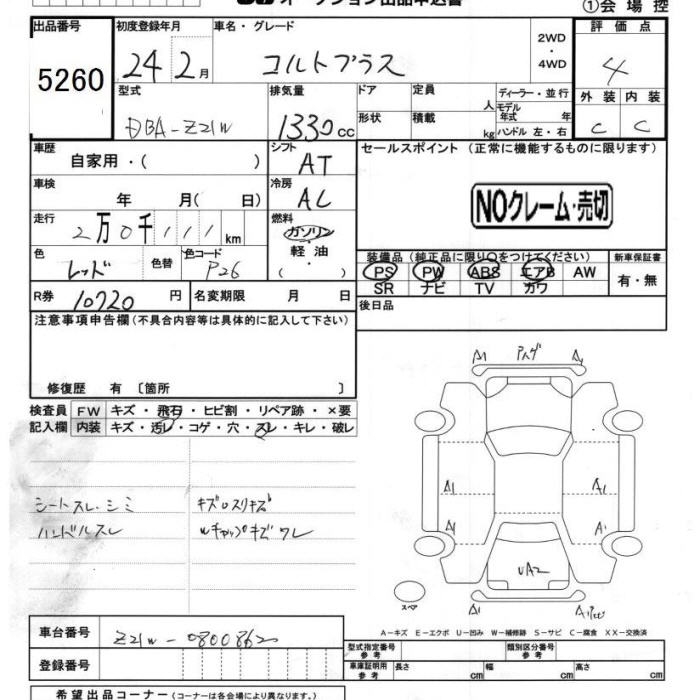 ①会場控
出品番号 初度登録年月 車名・グレード 2WD 評価点
5260 24 2月 コルトプラス ・4WD 4
型式 排気量 ドア 定員 人 ディーラー・並行 外装 内装
DBA-Z21W 1330cc 形状 積載 kg モデル年式 年 C C
ハンドル左・右
車歴 シフト セールスポイント (正常に機能するものに限ります)
自家用・( ) AT
車検 冷房 NOクレーム・売切
年 月( 日) AC
走行 燃料
2万0千111km ガソリン
色 色替 色コード 軽油 装備品(純正品に限り○をつけてください) 新車保証書
レッド P26 ( ) PS PW ABS エアB AW 有・無
SR ナビ TV カワ
R券 10720円 名変期限 月 日 後日品
注意事項申告欄(不具合内容等は具体的に記入して下さい)
修復歴 有 〔箇所 〕
検査員 FW キズ・飛石・ヒビ割・リペア跡・×要
記入欄 内装 キズ・汚レ・コゲ・穴・スレ・キレ・破レ
A1
A1 A1
A1 A1
UA2
A1
シートスレ・シミ
ハンドルスレ
スペア
A-キズ E-エクボ U-凹み W-補修跡 S-サビ C-腐食 XX-交換済
車台番号 Z21W-0800862
登録番号
型式指定番号 参考 類別区分番号 参考
車庫証明用 参考 長さ cm 幅 cm 高さ cm
希望出品コーナー(コーナーは各会場により異なります。)